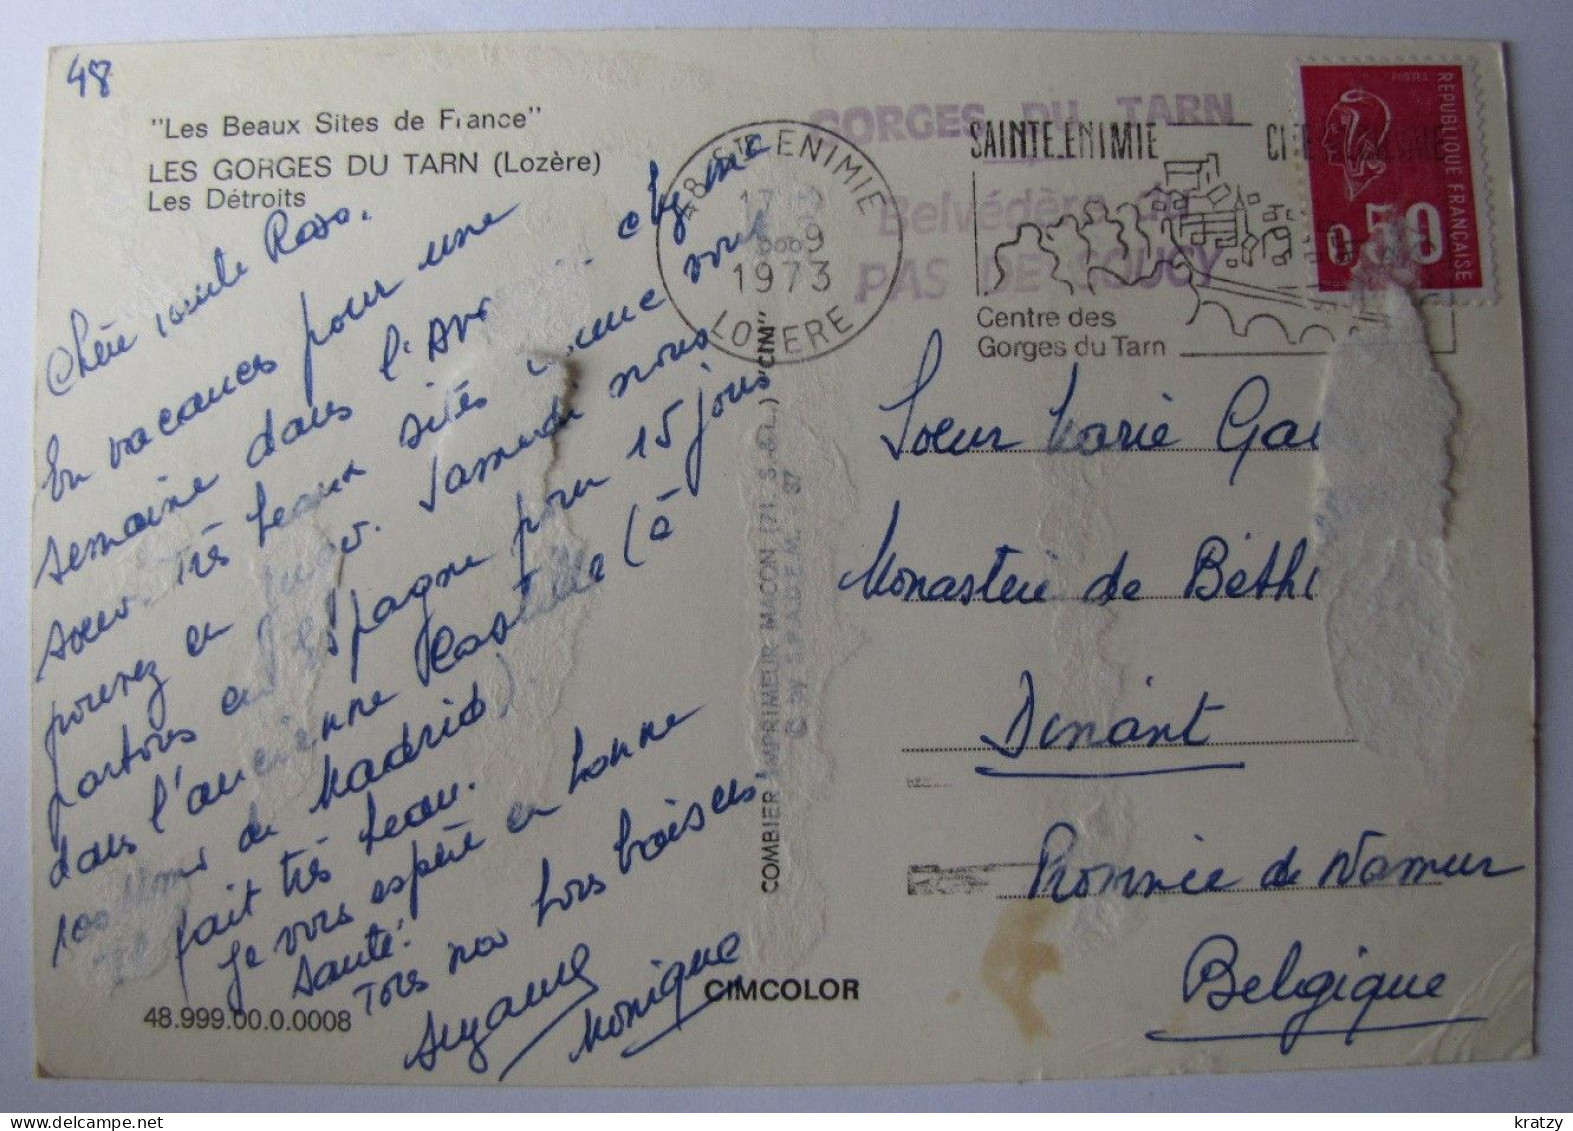 48
"Les Beaux Sites de France"
LES GORGES DU TARN (Lozère)
Les Détroits
Chère tante Rosa.
En vacances pour une
semaine dans l'Avey chez une
soeur. très beaux sités comme vous
pouvez en juger. Samedi nous
partons en Espagne pour 15 jours
dans l'ancienne Castille (à
100 kms de Madrid)
Il fait très beau.
Je vous espère en bonne
santé.
Tous nos bons baisers
Suzanne
Monique
48.999.00.0.0008
CIMCOLOR
COMBIER IMPRIMEUR MACON (71. S.&L.) "CIM"
S.P.A.D.E.M.
GORGES DU TARN
Belvédère du
PAS DE SOUCY
48 STE ENIMIE
17
9
1973
LOZERE
SAINTE.ENIMIE
Centre des
Gorges du Tarn
POSTES
REPUBLIQUE FRANÇAISE
0.50
Soeur Marie Ga
Monastère de Béth
Dinant
Province de Namur
Belgique
kratzy